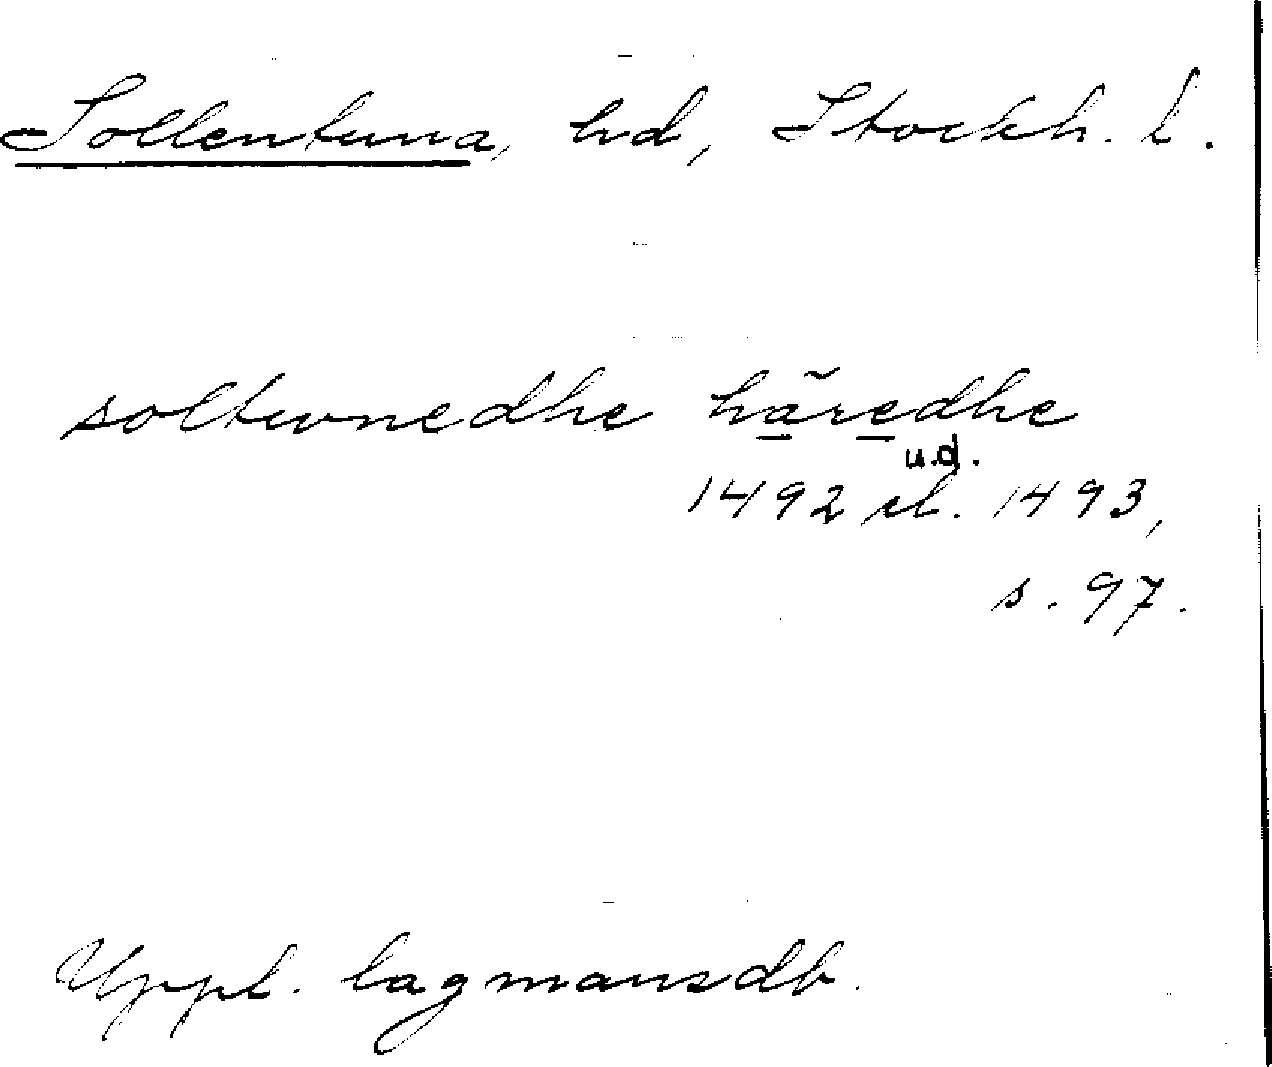 Sollentuna, hd, Stockh. l.
soltwnedhe häredhe
u.d.
1492 el. 1493,
s. 97.
Uppl. lagmansdb.